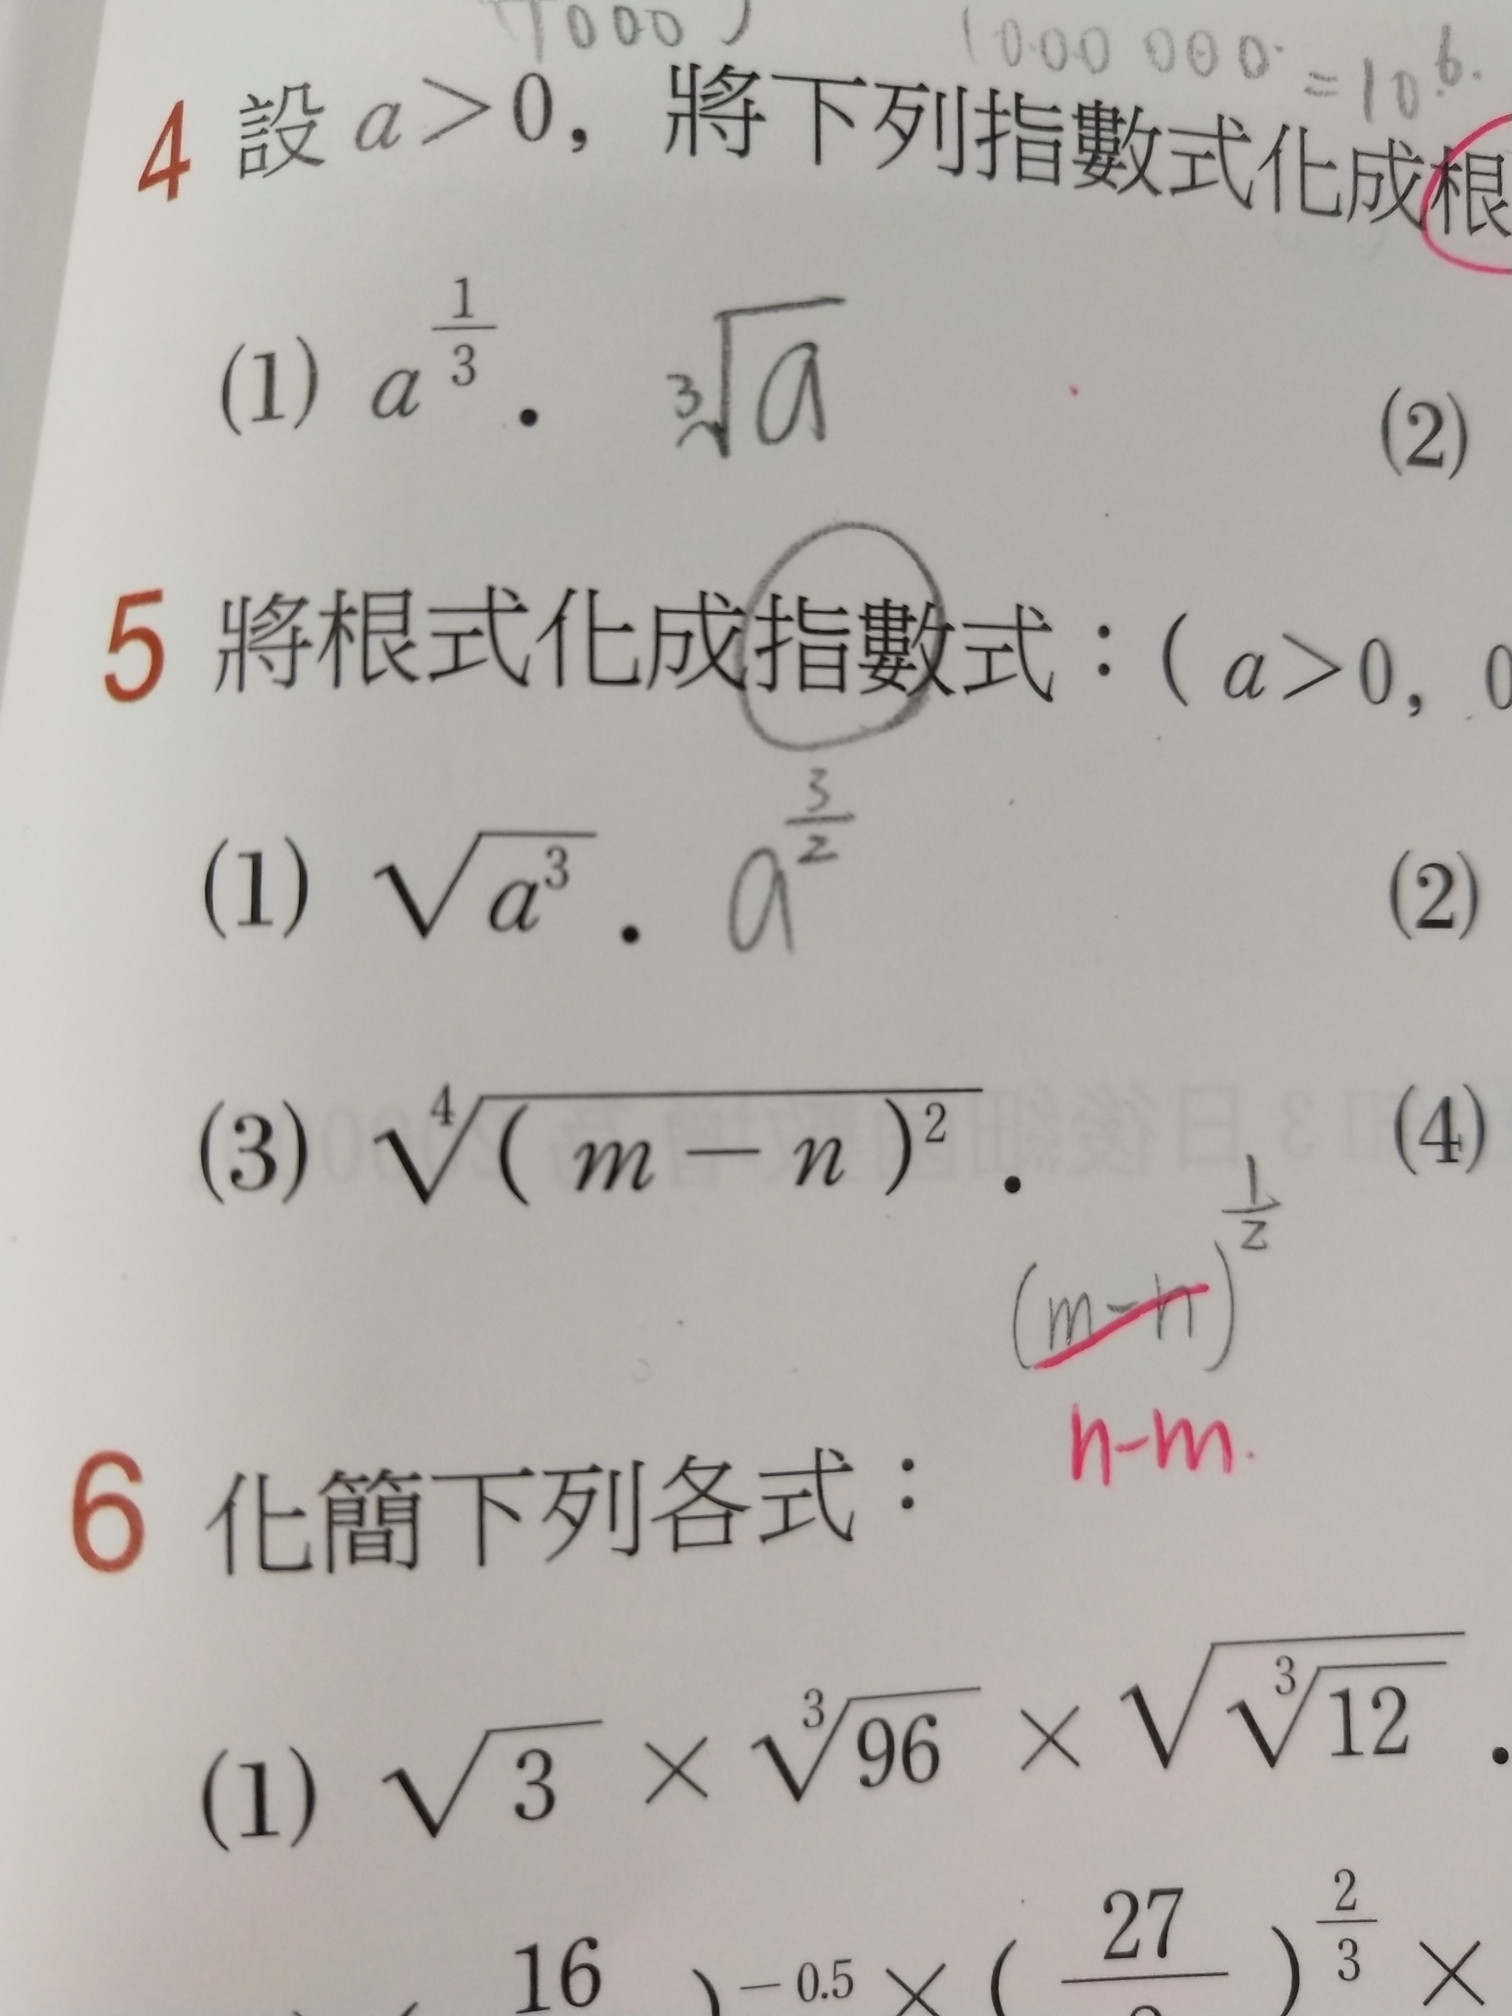 1000 )
1000 000 = 10⁶.
4 設 a>0，將下列指數式化成根
(1) a^{1/3}． ∛a (2)
5 將根式化成指數式：( a>0，0
(1) √(a³)． a^{3/2} (2)
(3) ∜(( m－n )²)． (4)
(m-n)^{1/2}
n-m.
6 化簡下列各式：
(1) √3 × ∛96 × √(∛12)．
16 )^{－0.5} × ( 27 )^{2/3} ×